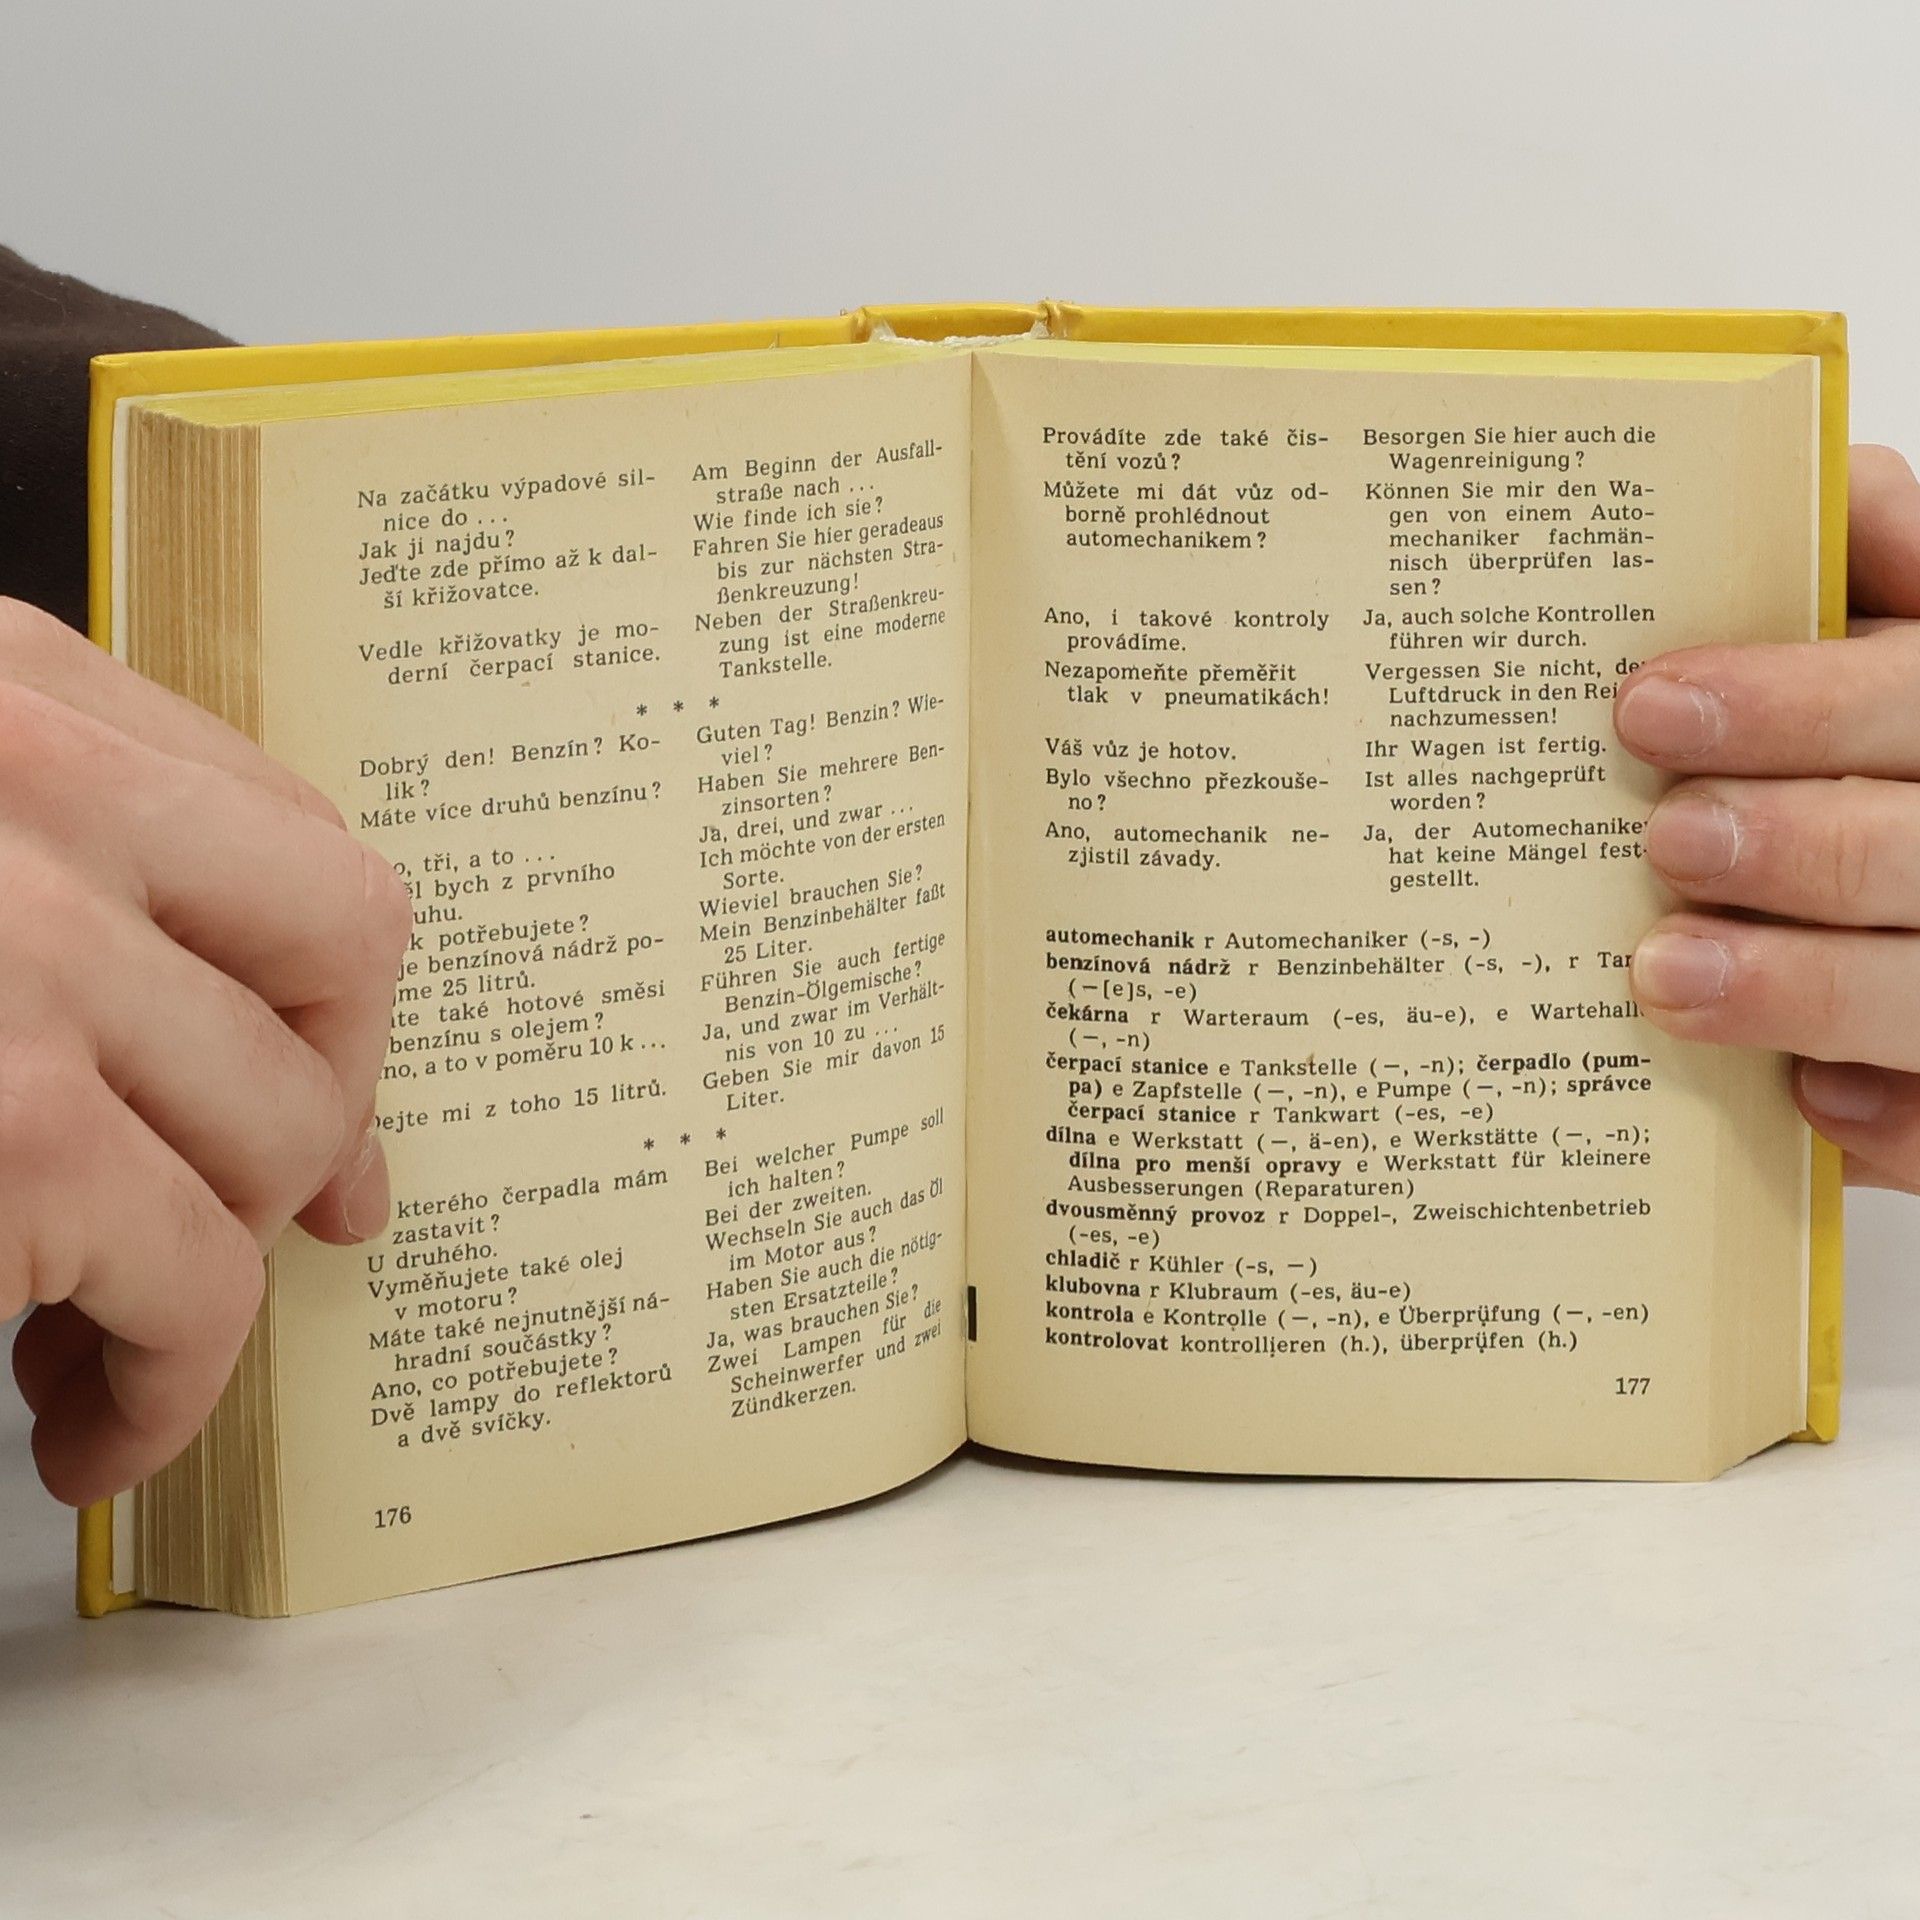 Na začátku výpadové sil-
nice do ...
Jak ji najdu?
Jeďte zde přímo až k dal-
ší křižovatce.
Vedle křižovatky je mo-
derní čerpací stanice.
Am Beginn der Ausfall-
straße nach ...
Wie finde ich sie?
Fahren Sie hier geradeaus
bis zur nächsten Stra-
ßenkreuzung!
Neben der Straßenkreu-
zung ist eine moderne
Tankstelle.
* * *
Dobrý den! Benzín? Ko-
lik?
Máte více druhů benzínu?
tři, a to ...
bych z prvního
potřebujete?
je benzínová nádrž po-
25 litrů.
také hotové směsi
benzínu s olejem?
a to v poměru 10 k ...
mi z toho 15 litrů.
Guten Tag! Benzin? Wie-
viel?
Haben Sie mehrere Ben-
zinsorten?
Ja, drei, und zwar ...
Ich möchte von der ersten
Sorte.
Wieviel brauchen Sie?
Mein Benzinbehälter faßt
25 Liter.
Führen Sie auch fertige
Benzin-Ölgemische?
Ja, und zwar im Verhält-
nis von 10 zu ...
Geben Sie mir davon 15
Liter.
* * *
kterého čerpadla mám
zastavit?
U druhého.
Vyměňujete také olej
v motoru?
Máte také nejnutnější ná-
hradní součástky?
Ano, co potřebujete?
Dvě lampy do reflektorů
a dvě svíčky.
Bei welcher Pumpe soll
ich halten?
Bei der zweiten.
Wechseln Sie auch das Öl
im Motor aus?
Haben Sie auch die nötig-
sten Ersatzteile?
Ja, was brauchen Sie?
Zwei Lampen für die
Scheinwerfer und zwei
Zündkerzen.
176
Provádíte zde také čis-
tění vozů?
Můžete mi dát vůz od-
borně prohlédnout
automechanikem?
Ano, i takové kontroly
provádíme.
Nezapomeňte přeměřit
tlak v pneumatikách!
Váš vůz je hotov.
Bylo všechno přezkouše-
no?
Ano, automechanik ne-
zjistil závady.
Besorgen Sie hier auch die
Wagenreinigung?
Können Sie mir den Wa-
gen von einem Auto-
mechaniker fachmän-
nisch überprüfen las-
sen?
Ja, auch solche Kontrollen
führen wir durch.
Vergessen Sie nicht,
Luftdruck in den
nachzumessen!
Ihr Wagen ist fertig.
Ist alles nachgeprüft
worden?
Ja, der Automechaniker
hat keine Mängel fest-
gestellt.
automechanik r Automechaniker (-s, -)
benzínová nádrž r Benzinbehälter (-s, -), r
(—[e]s, -e)
čekárna r Warteraum (-es, äu-e), e Wartehalle
(—, -n)
čerpací stanice e Tankstelle (—, -n); čerpadlo (pum-
pa) e Zapfstelle (—, -n), e Pumpe (—, -n); správce
čerpací stanice r Tankwart (-es, -e)
dílna e Werkstatt (—, ä-en), e Werkstätte (—, -n);
dílna pro menší opravy e Werkstatt für kleinere
Ausbesserungen (Reparaturen)
dvousměnný provoz r Doppel-, Zweischichtenbetrieb
(-es, -e)
chladič r Kühler (-s, —)
klubovna r Klubraum (-es, äu-e)
kontrola e Kontrọlle (—, -n), e Überprụ̈fung (—, -en)
kontrolovat kontrollịeren (h.), überprụ̈fen (h.)
177